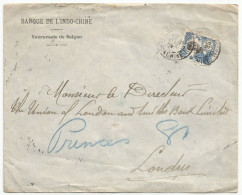 BANQUE DE L'INDO-CHINE
Succursale de Saïgon
Monsieur le Directeur
The Union of London and Smiths Bank Limited
Princes St
Londres